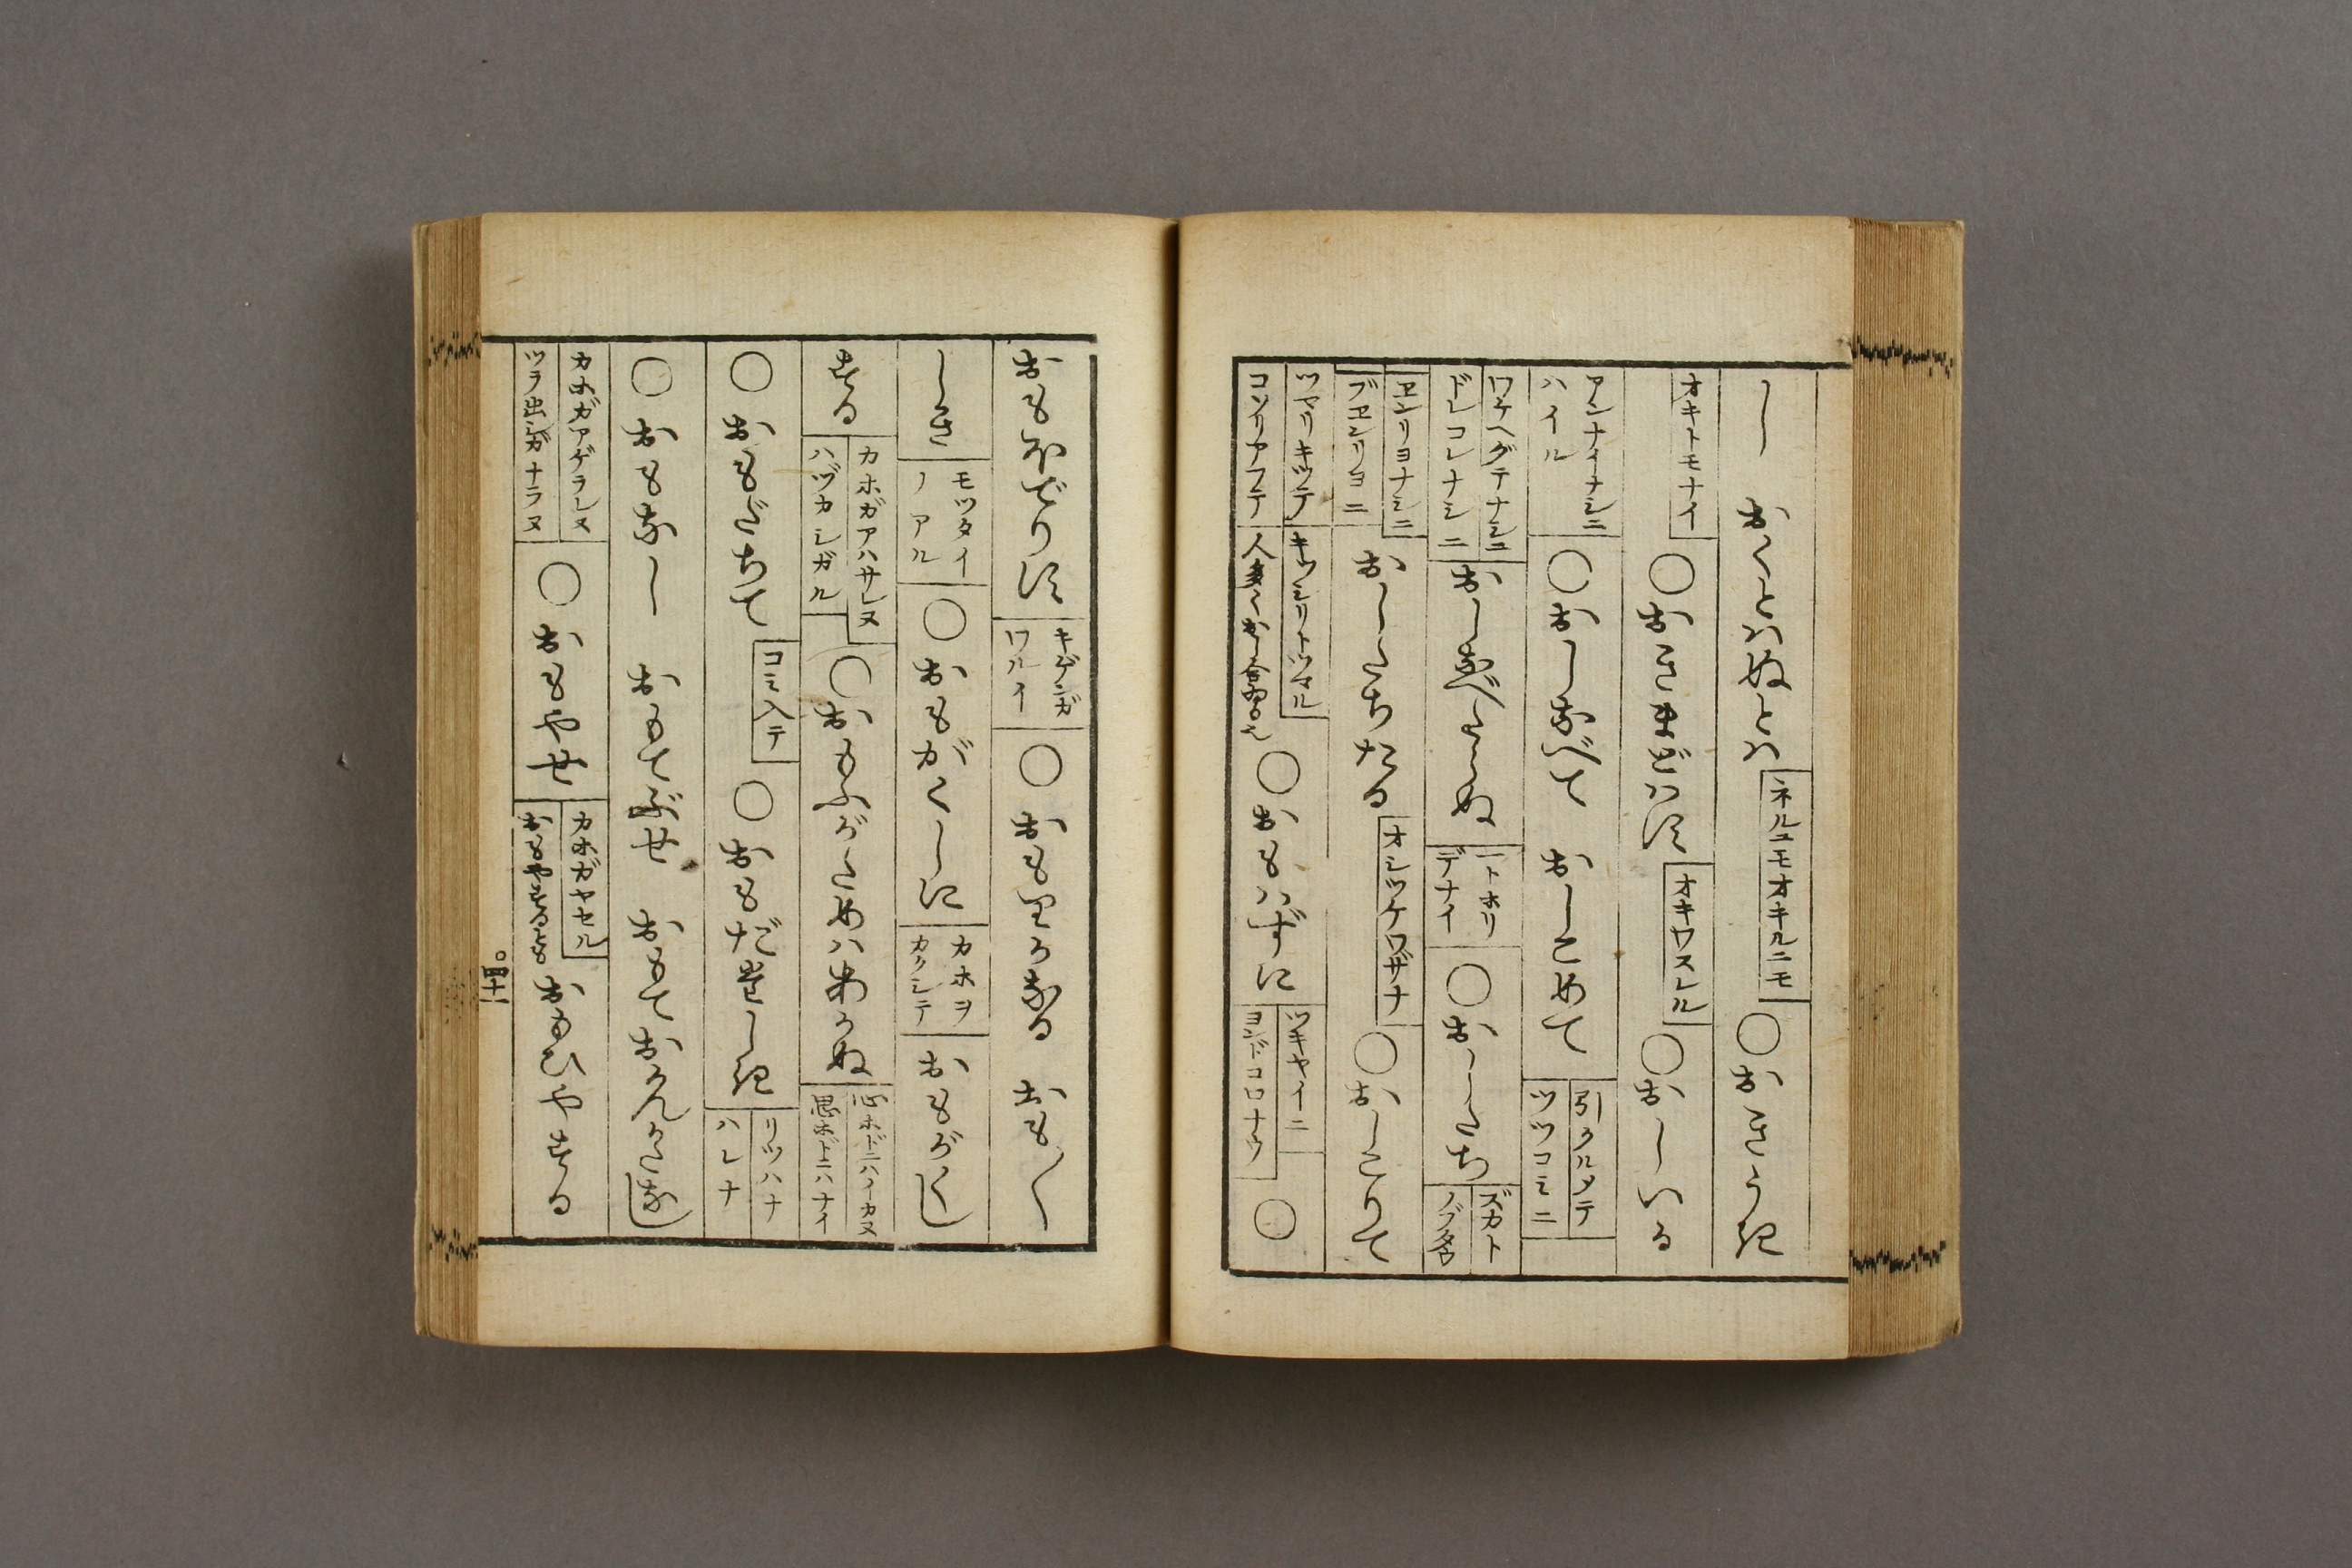 し おくとはぬとは
ネルニモオキルニモ
○おきうき
オキトモナイ
○おきまどはす
オキワスレル
○おしいる
アンナイナシニ
ハイル
○おしなべて おしこめて
引クルメテ
ツツコミニ
ワケヘダテナシニ
ドレコレナシニ
おしなべたらぬ
一トホリ
デナイ
○おしたち
ズカト
エンリヨナシニ
ブエンリヨニ
おしたちたる
オシツケワザナ
○おしこりて
ツマリキツテ
コゾリアフテ
キツシリトツマル
○おもはずに
ツキヤイニ
ヨンドコロナウ
○
おもほでりす
キゲンガ
ワルイ
○おもりかなる おも〱
しき
モツタイ
ノアル
○おもがくしに
カホヲ
カクシテ
おもがくし
する
カホガアハサレヌ
ハヅカシガル
○おもふがためはあかぬ
心ホドニハイカヌ
思ホドニハナイ
○おもだちて
コミ入テ
○おもだゝしき
リツハナ
ハレナ
○おもなし おもてぶせ おもておかんかたなし
カホガアゲラレヌ
ツラ出シガナラヌ
○おもやせ
カホガヤセル
おもやするとも
おもひやする
四十一